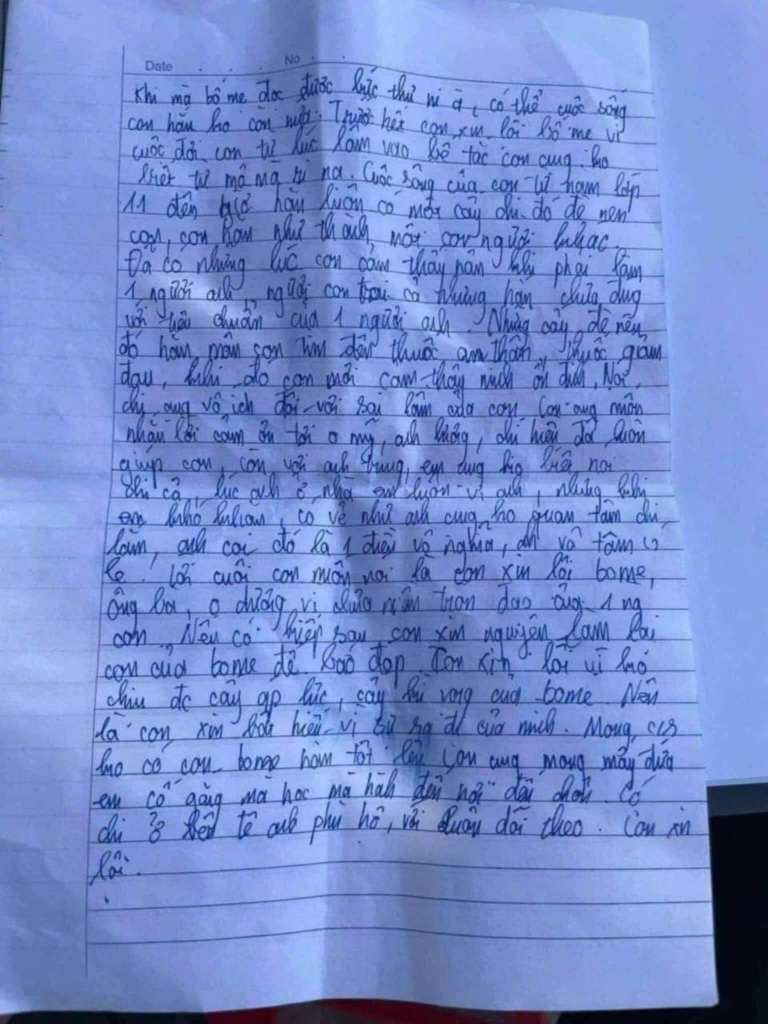 Date No
Khi mà bố mẹ đọc được bức thư ni à, có thể cuộc sống
con hắn ko còn nữa. Trước hết con xin lỗi bố mẹ vì
cuộc đời con từ lúc lâm vào bế tắc con cung ko
biết từ mô mà ri na. Cuộc sống của con từ năm lớp
11 đến bừ hắn luôn có một cây chi đó đè nén
con, con hắn như thành một con người khác.
Đã có những lúc con cảm thấy nản khi phải làm
1 người anh, người con trai cả nhưng hắn chưa đúng
với tiêu chuẩn của 1 người anh. Những cây đè nén
đó hắn mần con tìm đến thuốc an thần, thuốc giảm
đau, khi đó con mới cảm thấy mình ổn định. Nói
chi cung vô ích đối với sai lầm của con. Con cung muốn
nhắn lời cảm ơn tới o mỹ, anh lường, chí hiếu đã luôn
giúp con, còn với anh trung, em cung ko biết noi
chi cả, lúc anh ở nhà em luôn vì anh, nhưng khi
em khó khăn, co vẻ như anh cung ko quan tâm chi
lắm, anh coi đó là 1 điều vô nghĩa, vô tâm
lẽ. Lời cuối con muốn noi là con xin lỗi bome,
ông ba, o dượng vì chưa mần tron đao của 1 ng
con. Nếu có kiếp sau con xin nguyên lam lai
con cua bome để báo đap. Con xin lỗi vì ko
chiu đc cây ap lưc, cây kì vong cua bome. Nên
là con xin bất hiếu vì sự ra đi của mình. Mong
ko có con bome hắn tốt lên. Con cung mong mấy đứa
em cố găng mà hoc mà hành đến nơi đến chốn. Có
chi ở bên tê anh phù hô, với luôn dõi theo. Con xin
lỗi.